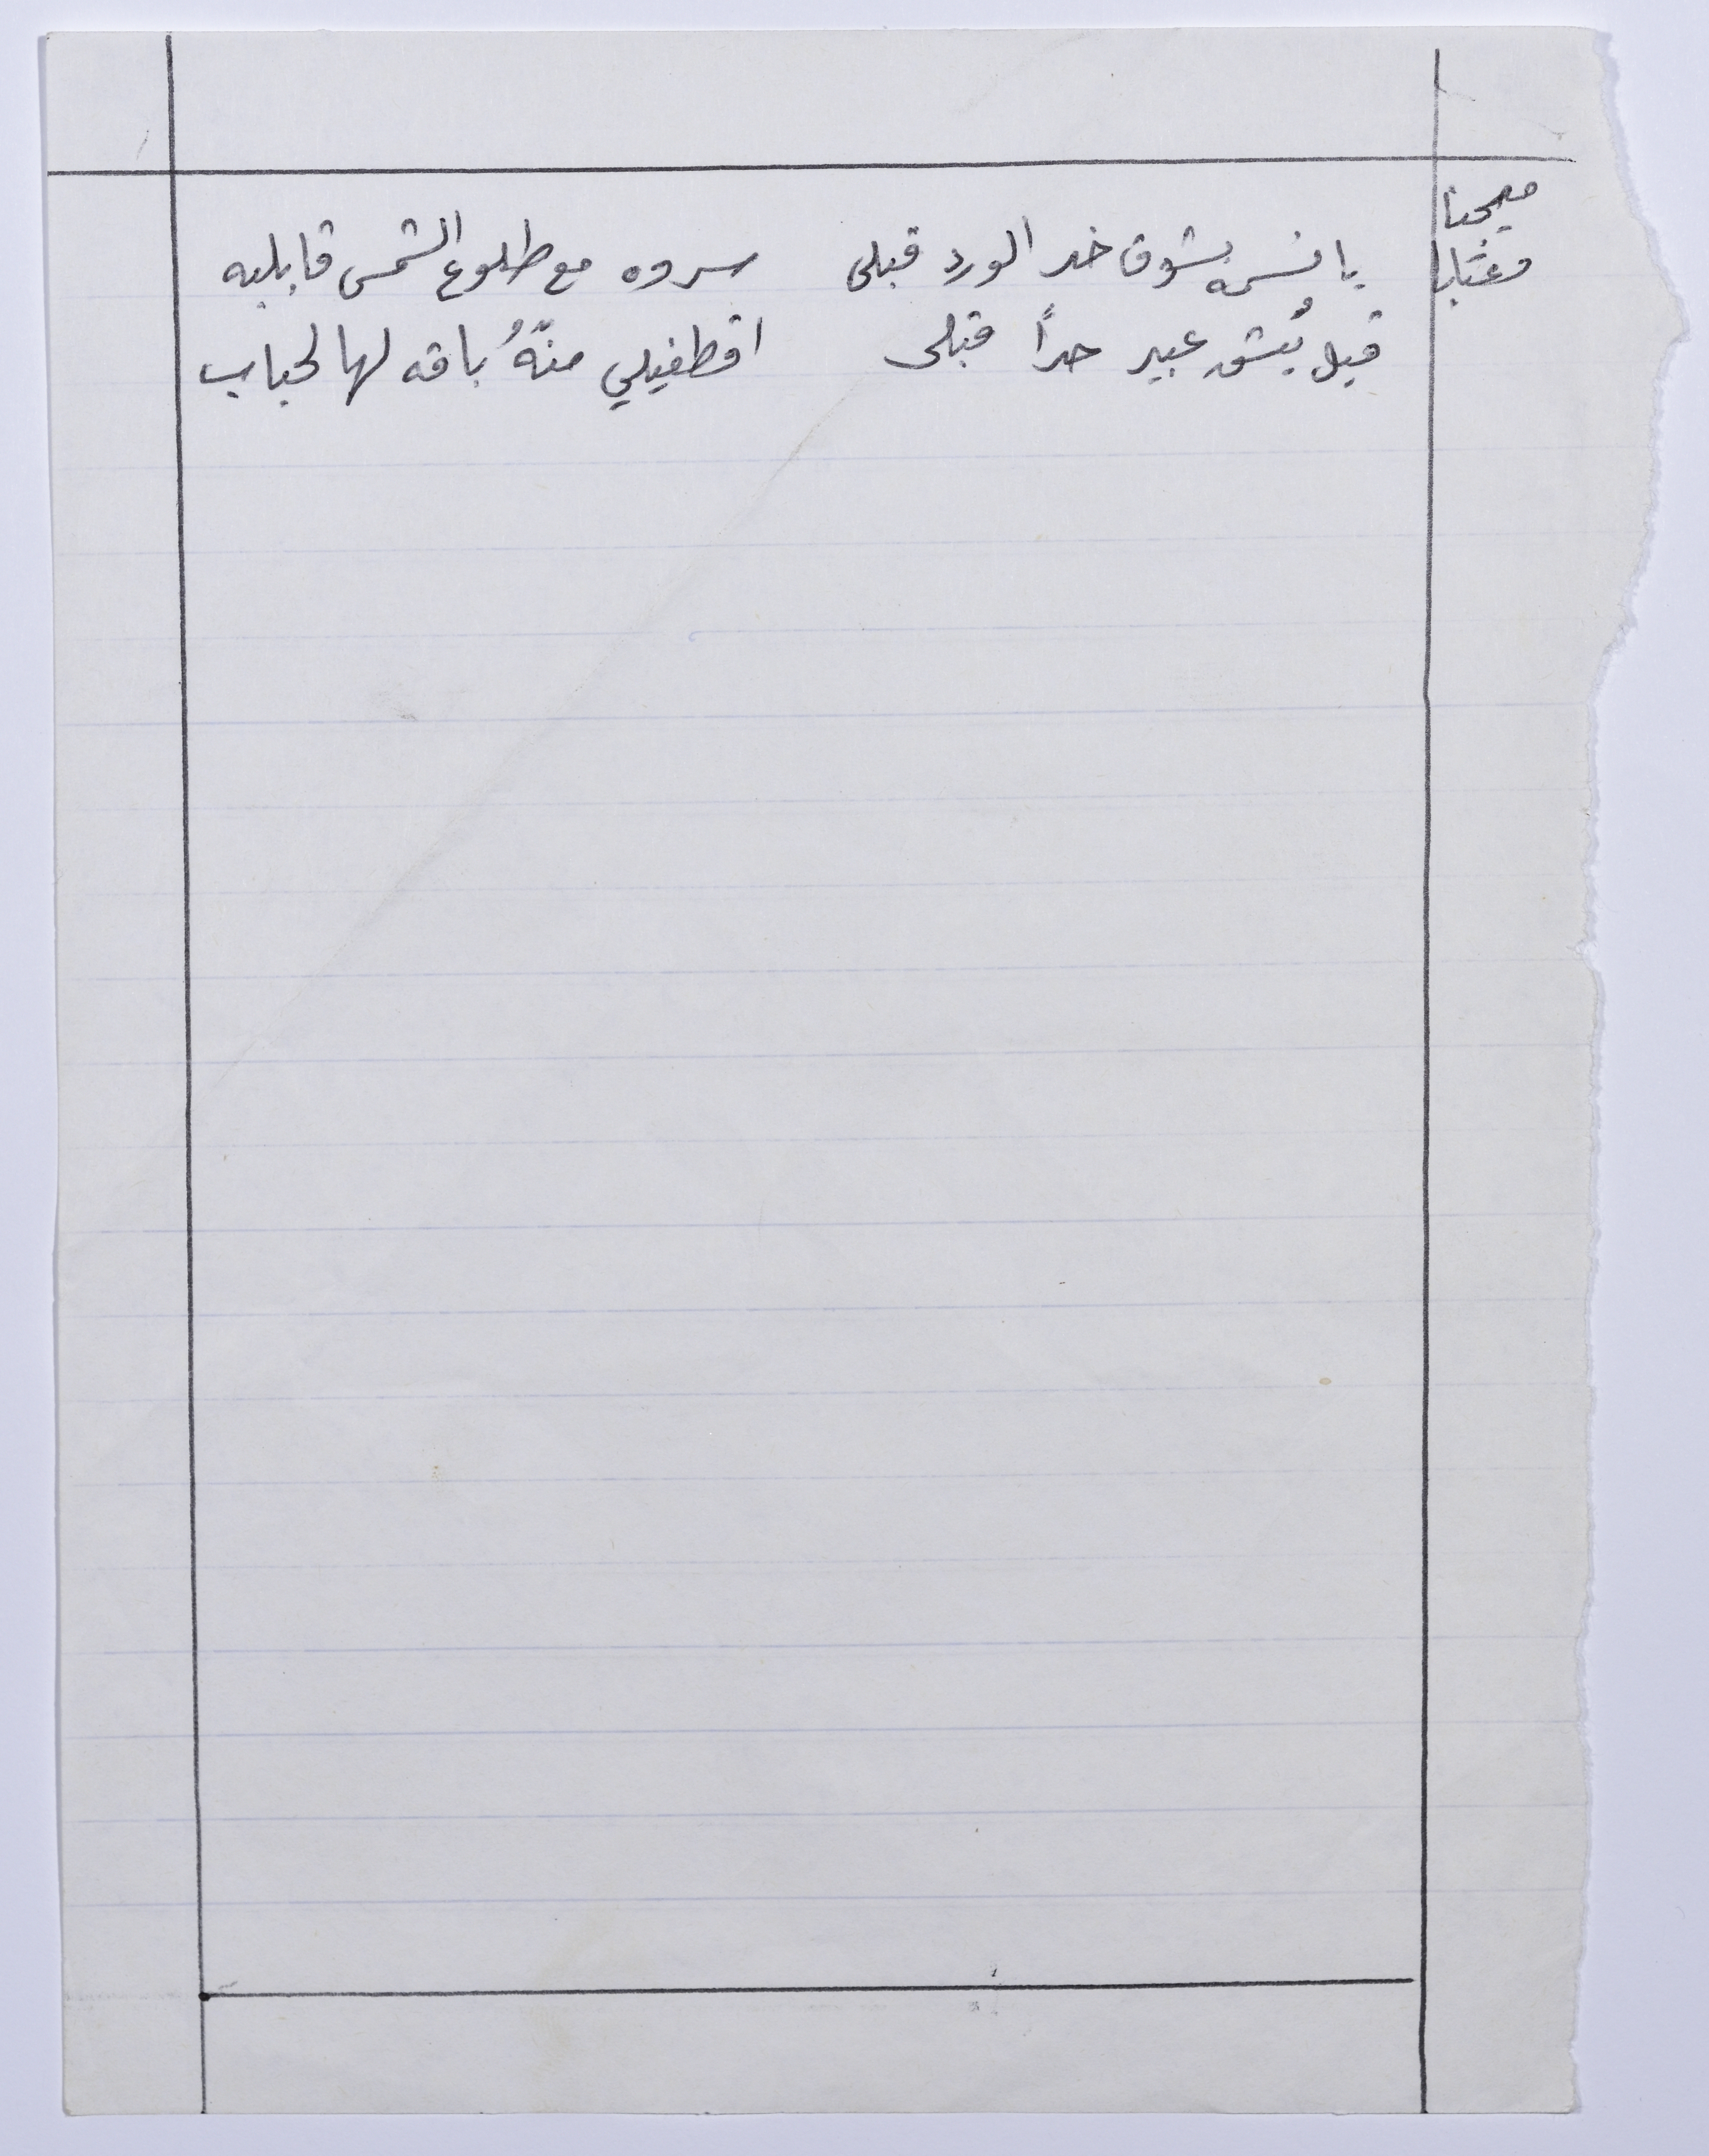 ميجنا
وعتابا
يا نسمه بشوق خد الورد قبلي سروه مع طلوع الشمس قابليه
قبل يُشق عبير حداً قبلي اقطفيلي منّهُ باقه لهالحباب